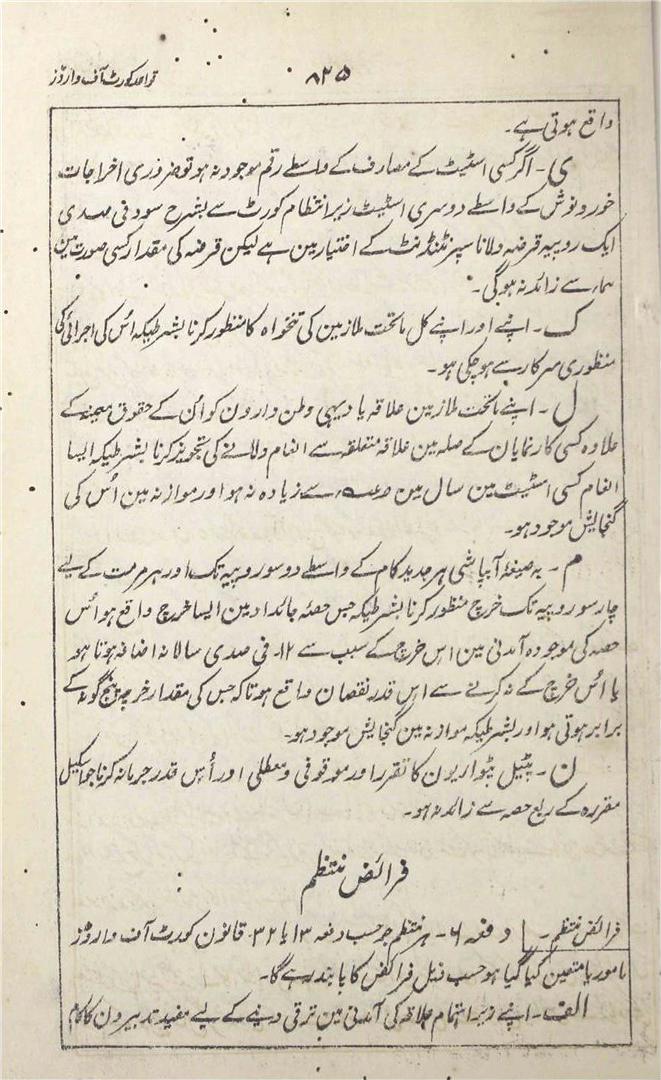 قواعد کورٹ آف وارڈز
۸۲۵
واقع ہوتی ہے۔
ی۔ اگر کسی اسٹیٹ کے مصارف کے واسطے رقم موجود نہ ہو تو ضروری اخراجات
خور و نوش کے واسطے دوسری اسٹیٹ زیر انتظام کورٹ سے بشرح سود فی صدی
ایک روپیہ قرضہ دلانا سپرنٹنڈنٹ کے اختیار مین ہے لیکن قرضہ کی مقدار کسی صورت مین
سے زائد نہ ہوگی۔
ک۔ اپنے اور اپنے کل ماتحت ملازمین کی تنخواہ کا منظور کرنا بشرطیکہ اُس کی اجرائی کی
منظوری سرکار سے ہو چکی ہو۔
ل۔ اپنے ماتحت ملازمین علاقہ یا دیہی وطن دارون کو اُن کے حقوق معینہ کے
علاوہ کسی کار نمایان کے صلہ مین علاقہ متعلقہ سے انعام دلانے کی تجویز کرنا بشرطیکہ ایسا
انعام کسی اسٹیٹ مین سال مین سے زیادہ نہ ہو اور موازنہ مین اُس کی
گنجایش موجود ہو۔
م۔ بہ صیغۂ آبپاشی ہر جدید کام کے واسطے دو سو روپیہ تک اور ہر مرمت کے لیے
چار سو روپیہ تک خرچ منظور کرنا بشرطیکہ جس حصۂ جائداد مین ایسا خرچ واقع ہو اُس
حصہ کی موجودہ آمدنی مین اس خرچ کے سبب سے ۱۲۔ فی صدی سالانہ اضافہ ہوتا ہو
یا اُس خرچ کے نہ کرنے سے اس قدر نقصان واقع ہوتا کہ جس کی مقدار خرچہ پنج گونہ کے
برابر ہوتی ہو اور بشرطیکہ موازنہ مین گنجایش موجود ہو۔
ن۔ پٹیل پٹواریون کا تقرر اور موقوفی و معطلی اور اُس قدر جرمانہ کرنا جو اسکیل
مقررہ کے ربع حصہ سے زائد نہ ہو۔
فرائض منتظم
فرائض منتظم۔ دفعہ ۶۔ ہر منتظم جو حسب دفعہ ۱۳ یا ۳۲ قانون کورٹ آف وارڈز
مامور یا متعین کیا گیا ہو حسب ذیل فرائض کا پابند رہے گا۔
الف۔ اپنے زیر اہتمام علاقہ کی آمدنی مین ترقی دینے کے لیے مفید تدبیرون کا کام